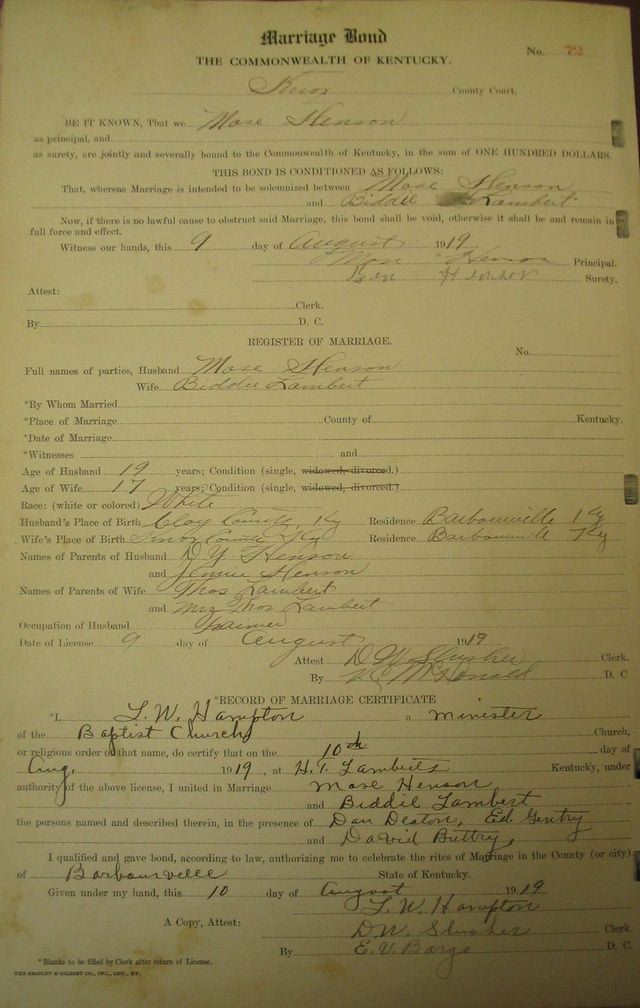 Marriage Bond
No. 72
THE COMMONWEALTH OF KENTUCKY.
Knox County Court.
BE IT KNOWN, That we Mose Henson
as principal, and
as surety, are jointly and severally bound to the Commonwealth of Kentucky, in the sum of ONE HUNDRED DOLLARS.
THIS BOND IS CONDITIONED AS FOLLOWS:
That, whereas Marriage is intended to be solemnized between Mose Henson
and Biddie Lambert
Now, if there is no lawful cause to obstruct said Marriage, this bond shall be void, otherwise it shall be and remain in
full force and effect.
Witness our hands, this 9 day of August 1919
Mose Henson Principal.
Ben Henson Surety.
Attest:
Clerk.
By D. C.
REGISTER OF MARRIAGE.
No.
Full names of parties, Husband Mose Henson
Wife Biddie Lambert
*By Whom Married
*Place of Marriage County of Kentucky.
*Date of Marriage
*Witnesses and
Age of Husband 19 years; Condition (single, widowed, divorced.)
Age of Wife 17 years; Condition (single, widowed, divorced.)
Race: (white or colored) White
Husband's Place of Birth Clay County, Ky Residence Barbourville Ky
Wife's Place of Birth Knox County Ky Residence Barbourville Ky
Names of Parents of Husband D Y Henson
and Jennie Henson
Names of Parents of Wife Thos Lambert
and Mrs Thos Lambert
Occupation of Husband Farmer
Date of License 9 day of August 1919
Attest D W Slusher Clerk.
By McDonald D. C
*RECORD OF MARRIAGE CERTIFICATE
*I, L. W. Hampton a minister
of the Baptist Church Church,
or religious order of that name, do certify that on the 10th day of
Aug. 1919, at H. T. Lamberts Kentucky, under
authority of the above license, I united in Marriage Mose Henson
and Biddie Lambert
the persons named and described therein, in the presence of Dan Deaton, Ed Gentry
and David Buttry,
I qualified and gave bond, according to law, authorizing me to celebrate the rites of Marriage in the County (or city)
of Barbourvelle State of Kentucky.
Given under my hand, this 10 day of August 1919
L. W. Hampton
A Copy, Attest: D. W. Slusher Clerk.
By E. V. Bargo D. C.
*Blanks to be filled by Clerk after return of License.
THE BRADLEY & GILBERT CO., INC., LOU., KY.